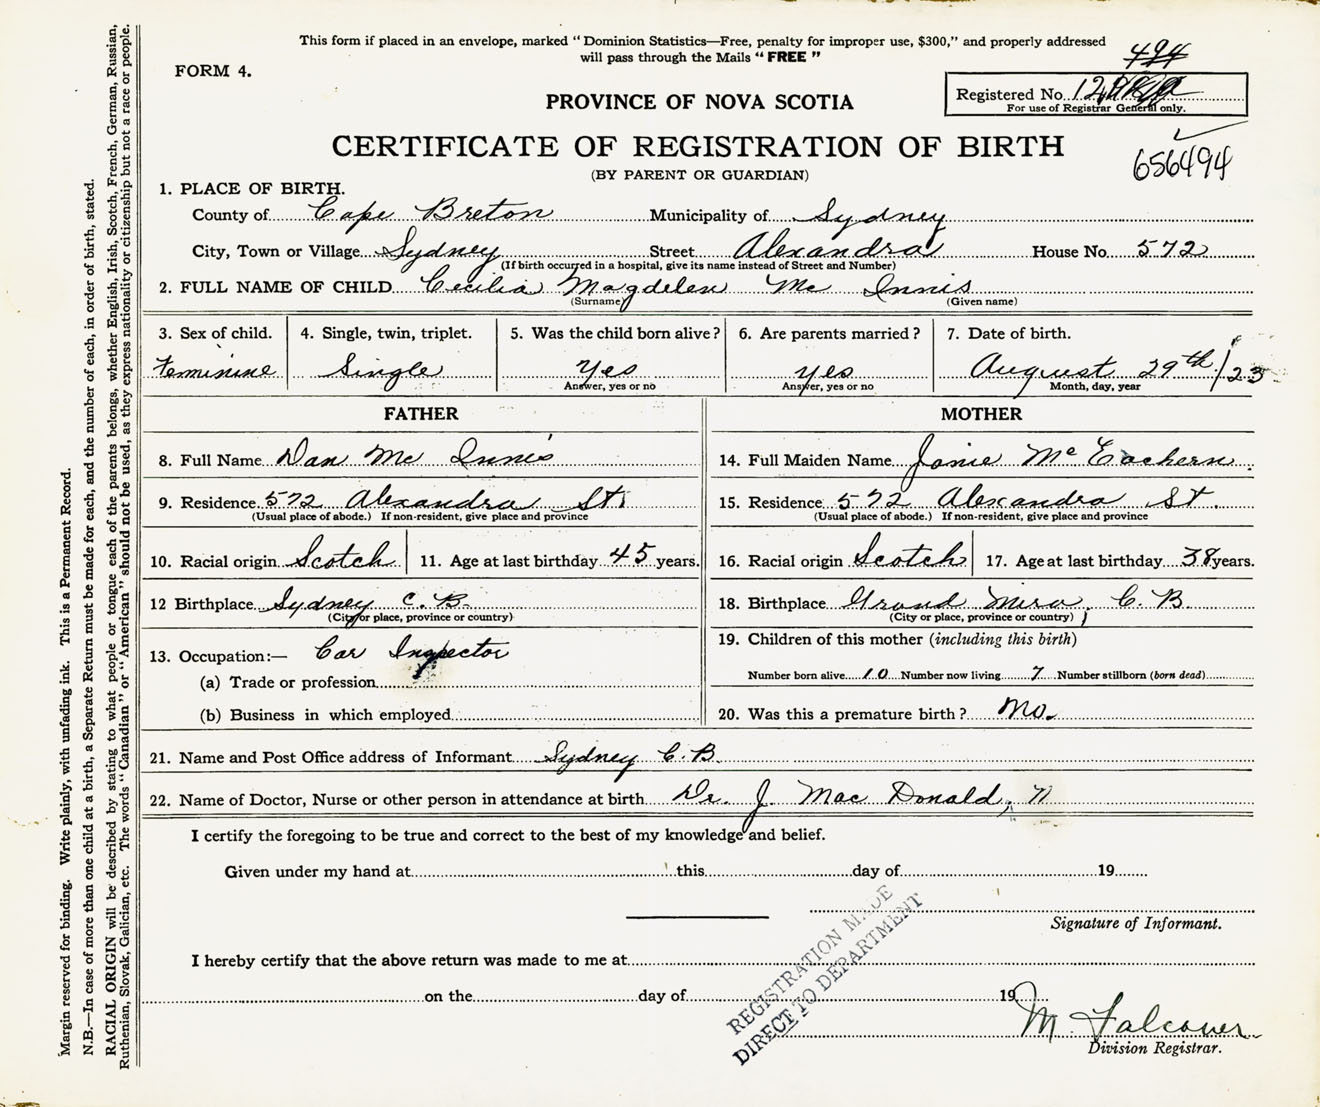 This form if placed in an envelope, marked "Dominion Statistics—Free, penalty for improper use, $300," and properly addressed
will pass through the Mails "FREE"
FORM 4.
494
PROVINCE OF NOVA SCOTIA
Registered No. 12
For use of Registrar General only.
CERTIFICATE OF REGISTRATION OF BIRTH
(BY PARENT OR GUARDIAN)
656494
1. PLACE OF BIRTH.
County of Cape Breton Municipality of Sydney
City, Town or Village Sydney Street Alexandra House No. 572
(If birth occurred in a hospital, give its name instead of Street and Number)
2. FULL NAME OF CHILD Cecilia Magdelen Mc Innis
(Surname) (Given name)
3. Sex of child. 4. Single, twin, triplet. 5. Was the child born alive? 6. Are parents married? 7. Date of birth.
Feminine Single Yes Yes August 29th/23
Answer, yes or no Answer, yes or no Month, day, year
FATHER MOTHER
8. Full Name Dan Mc Innis 14. Full Maiden Name Janie McEachern
9. Residence 572 Alexandra St. 15. Residence 572 Alexandra St.
(Usual place of abode.) If non-resident, give place and province (Usual place of abode.) If non-resident, give place and province
10. Racial origin Scotch 11. Age at last birthday 45 years. 16. Racial origin Scotch 17. Age at last birthday 38 years.
12 Birthplace Sydney C. B. 18. Birthplace Grand Mira, C. B.
(City or place, province or country) (City or place, province or country)
13. Occupation:— Car Inspector 19. Children of this mother (including this birth)
(a) Trade or profession Number born alive 10 Number now living 7 Number stillborn (born dead)
(b) Business in which employed 20. Was this a premature birth? No.
21. Name and Post Office address of Informant Sydney C. B.
22. Name of Doctor, Nurse or other person in attendance at birth Dr. J. Mac Donald,
I certify the foregoing to be true and correct to the best of my knowledge and belief.
Given under my hand at this day of 19
Signature of Informant.
REGISTRATION MADE
DIRECT TO DEPARTMENT
I hereby certify that the above return was made to me at
on the day of 19
M. Falconer
Division Registrar.
Margin reserved for binding. Write plainly, with unfading ink. This is a Permanent Record.
N.B.—In case of more than one child at a birth, a Separate Return must be made for each, and the number of each, in order of birth, stated.
RACIAL ORIGIN will be described by stating to what people or tongue each of the parents belongs, whether English, Irish, Scotch, French, German, Russian,
Ruthenian, Slovak, Galician, etc. The words "Canadian" or "American" should not be used, as they express nationality or citizenship but not a race or people.